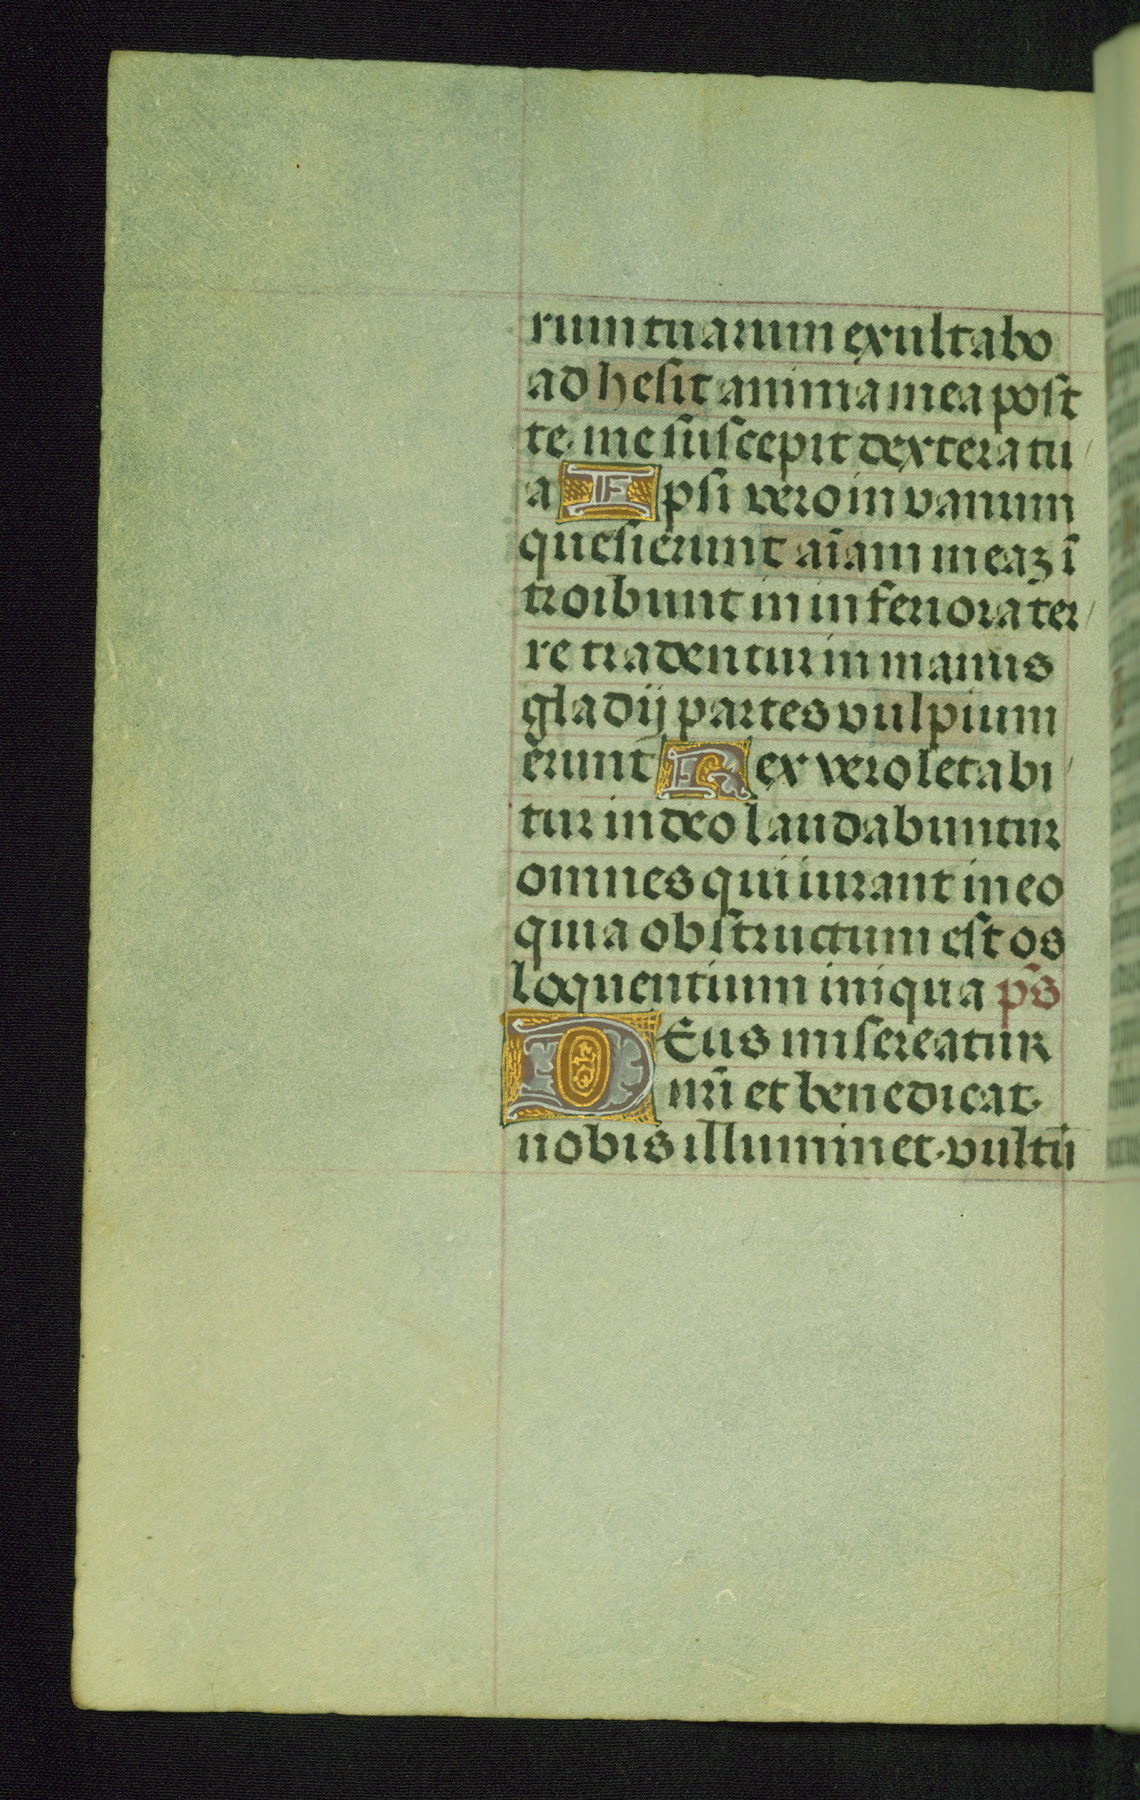 rum tuarum exultabo
adhesit anima mea post
te. me suscepit dextera tu
a Ipsi vero in vanum
quesierunt aīam meaz ī
troibunt in inferiora ter
re tradentur in manus
gladij partes vulpium
erunt Rex vero letabi
tur in deo laudabuntur
omnes qui iurant in eo
quia obstructum est os
loquentium iniqua p̄s
DEus misereatur
nr̄i et benedicat.
nobis illuminet. vultū